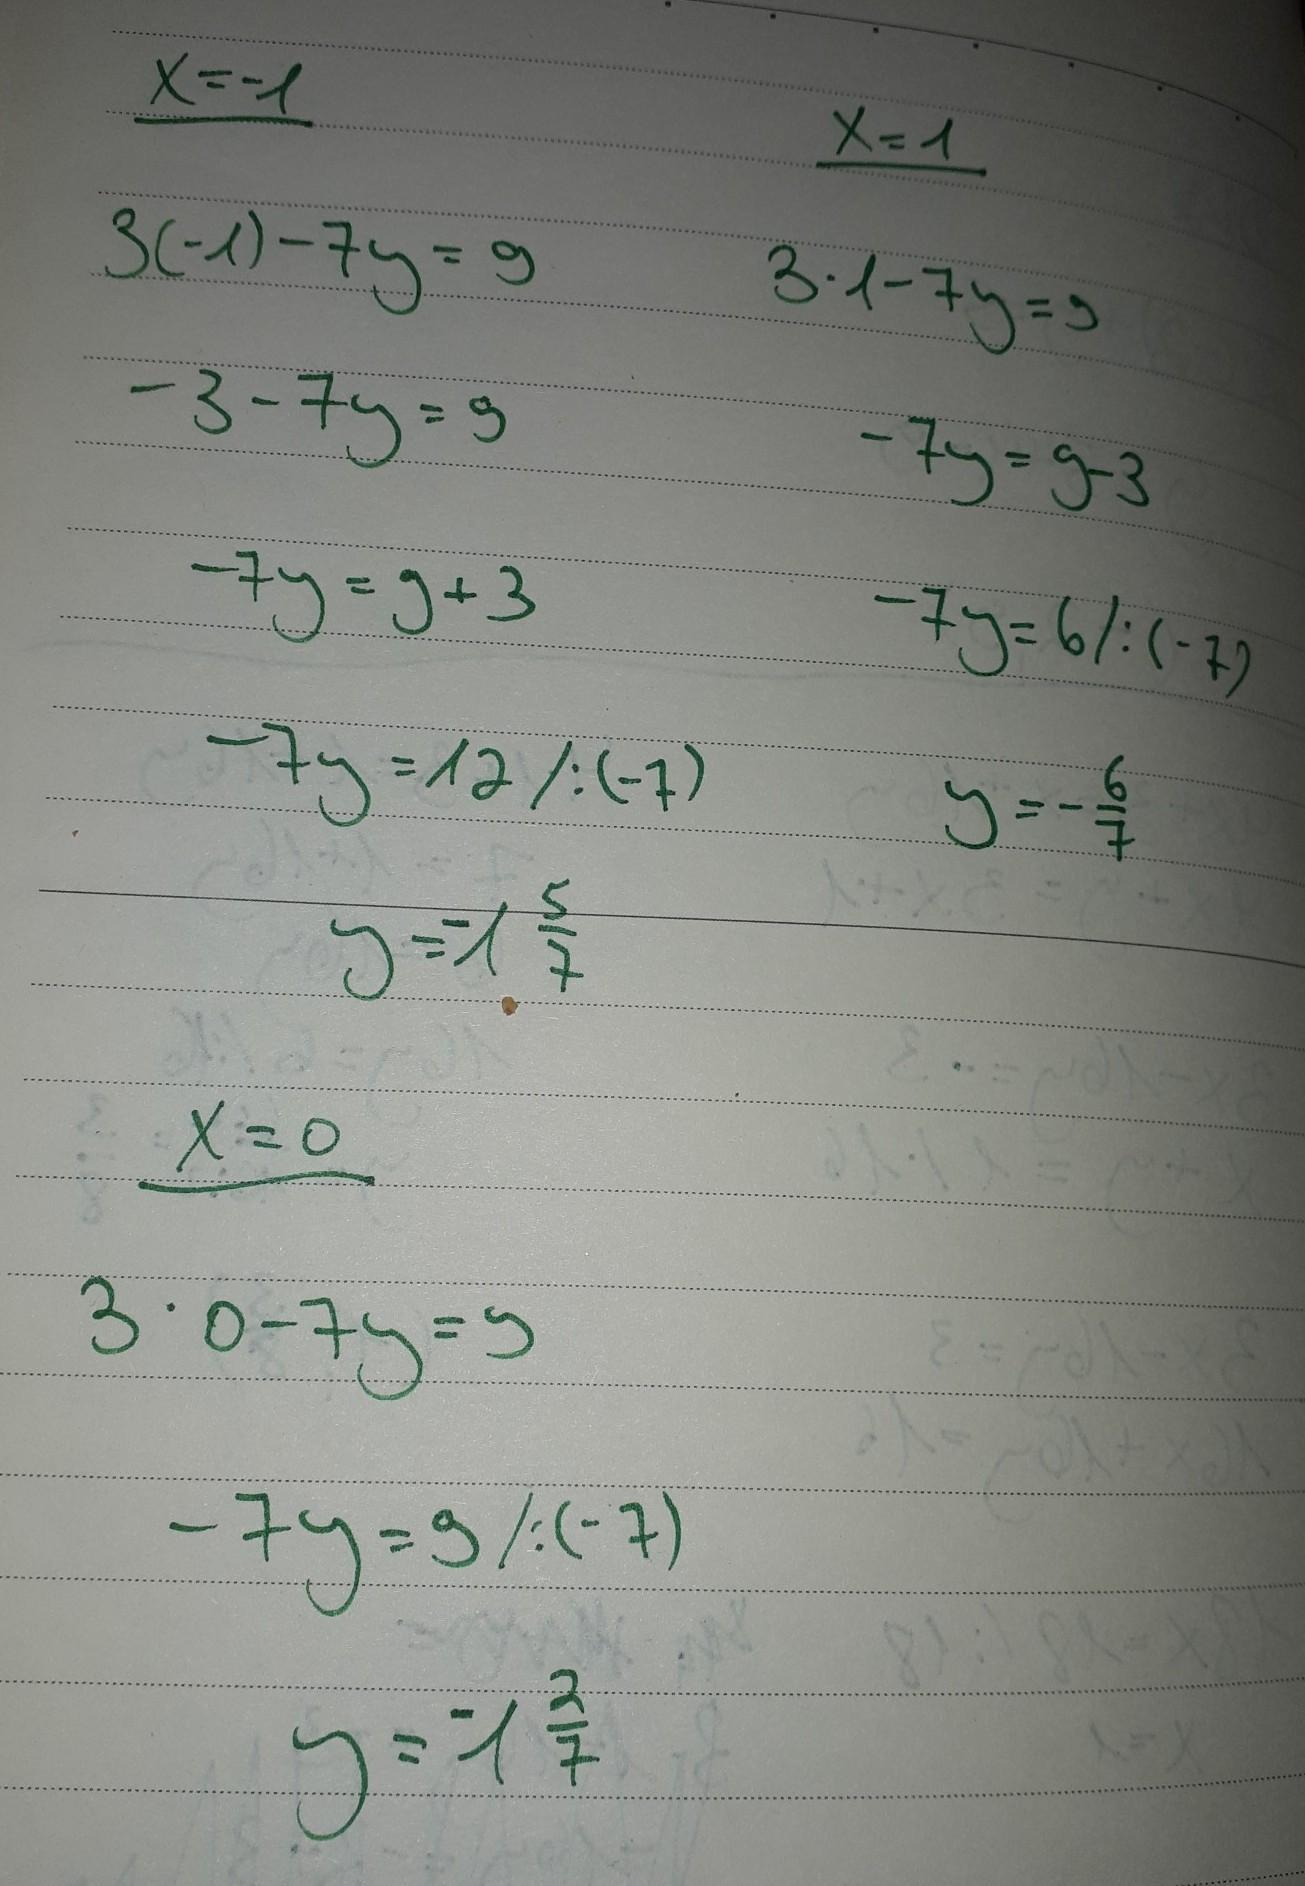 x=-1
3(-1)-7y=9
-3-7y=9
-7y=9+3
-7y=12 /:(-7)
y=-1 5/7
x=1
3·1-7y=9
-7y=9-3
-7y=6/:(-7)
y=-6/7
x=0
3·0-7y=9
-7y=9 /:(-7)
y=-1 2/7